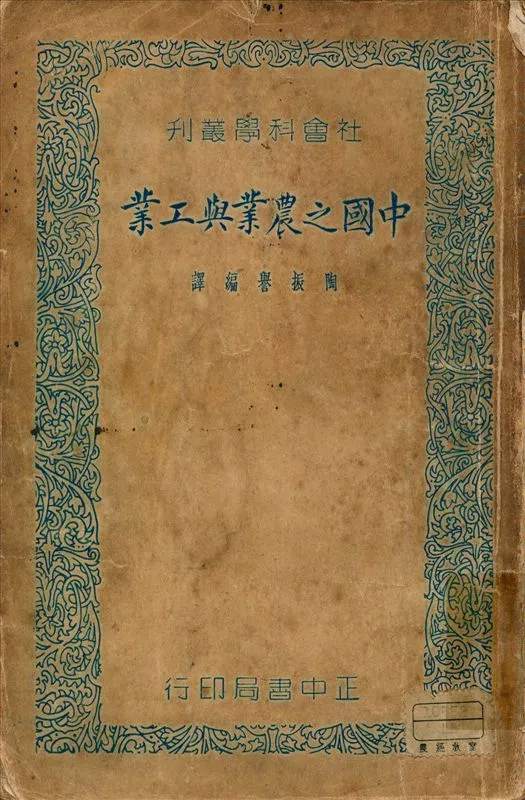 社會科學叢刊
中國之農業與工業
陶振譽編譯
正中書局印行
農經教室